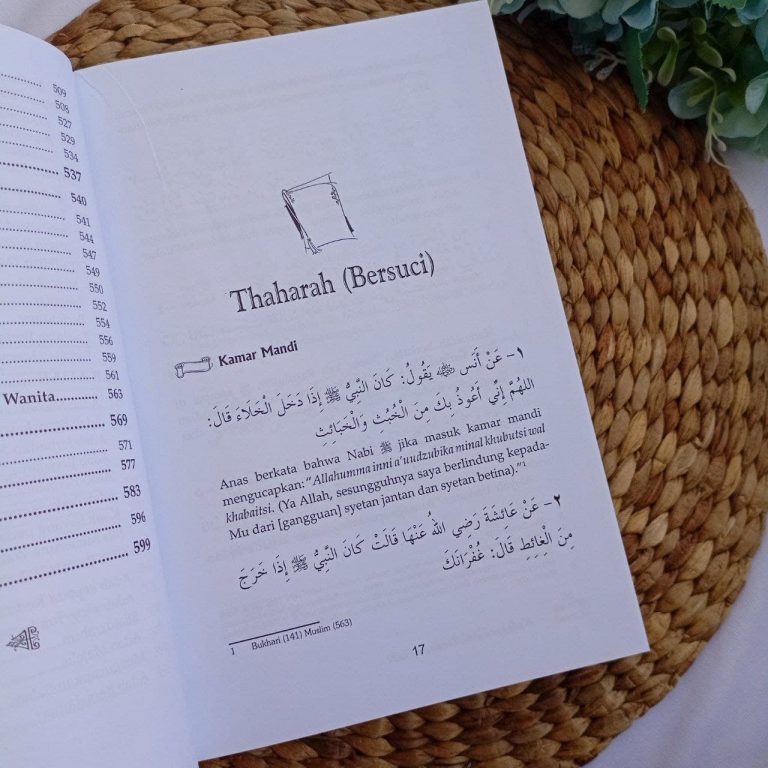 509
508
527
529
534
537
540
541
544
547
549
550
552
554
556
559
561
Wanita............ 563
569
571
577
583
596
599
Thaharah (Bersuci)
Kamar Mandi
١- عَنْ أَنَسٍ ﷺ يَقُولُ: كَانَ النَّبِيُّ ﷺ إِذَا دَخَلَ الْخَلَاءَ قَالَ:
اللهُمَّ إِنِّي أَعُوذُ بِكَ مِنَ الْخُبُثِ وَالْخَبَائِثِ
Anas berkata bahwa Nabi ﷺ jika masuk kamar mandi
mengucapkan: "Allahumma inni a'uudzubika minal khubutsi wal
khabaitsi. (Ya Allah, sesungguhnya saya berlindung kepada-
Mu dari [gangguan] syetan jantan dan syetan betina)."¹
٢- عَنْ عَائِشَةَ رَضِيَ اللهُ عَنْهَا قَالَتْ كَانَ النَّبِيُّ ﷺ إِذَا خَرَجَ
مِنَ الْغَائِطِ قَالَ: غُفْرَانَكَ
1 Bukhari (141) Muslim (563)
17